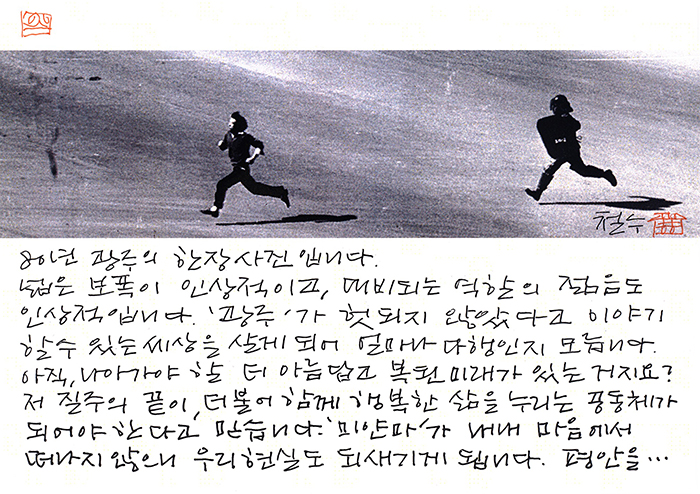 철수
80년 광주의 한장 사진입니다.
넓은 보폭이 인상적이고, 대비되는 역할의 젊음도
인상적입니다. '광주'가 헛되지 않았다고 이야기
할수 있는 세상을 살게 되어 얼마나 다행인지 모릅니다.
아직, 나아가야 할 더 아름답고 복된 미래가 있는 거지요?
저 질주의 끝이, 더불어 함께 행복한 삶을 누리는 공동체가
되어야 한다고 믿습니다. '미얀마'가 내내 마음에서
떠나지 않으니 우리현실도 되새기게 됩니다. 평안을...